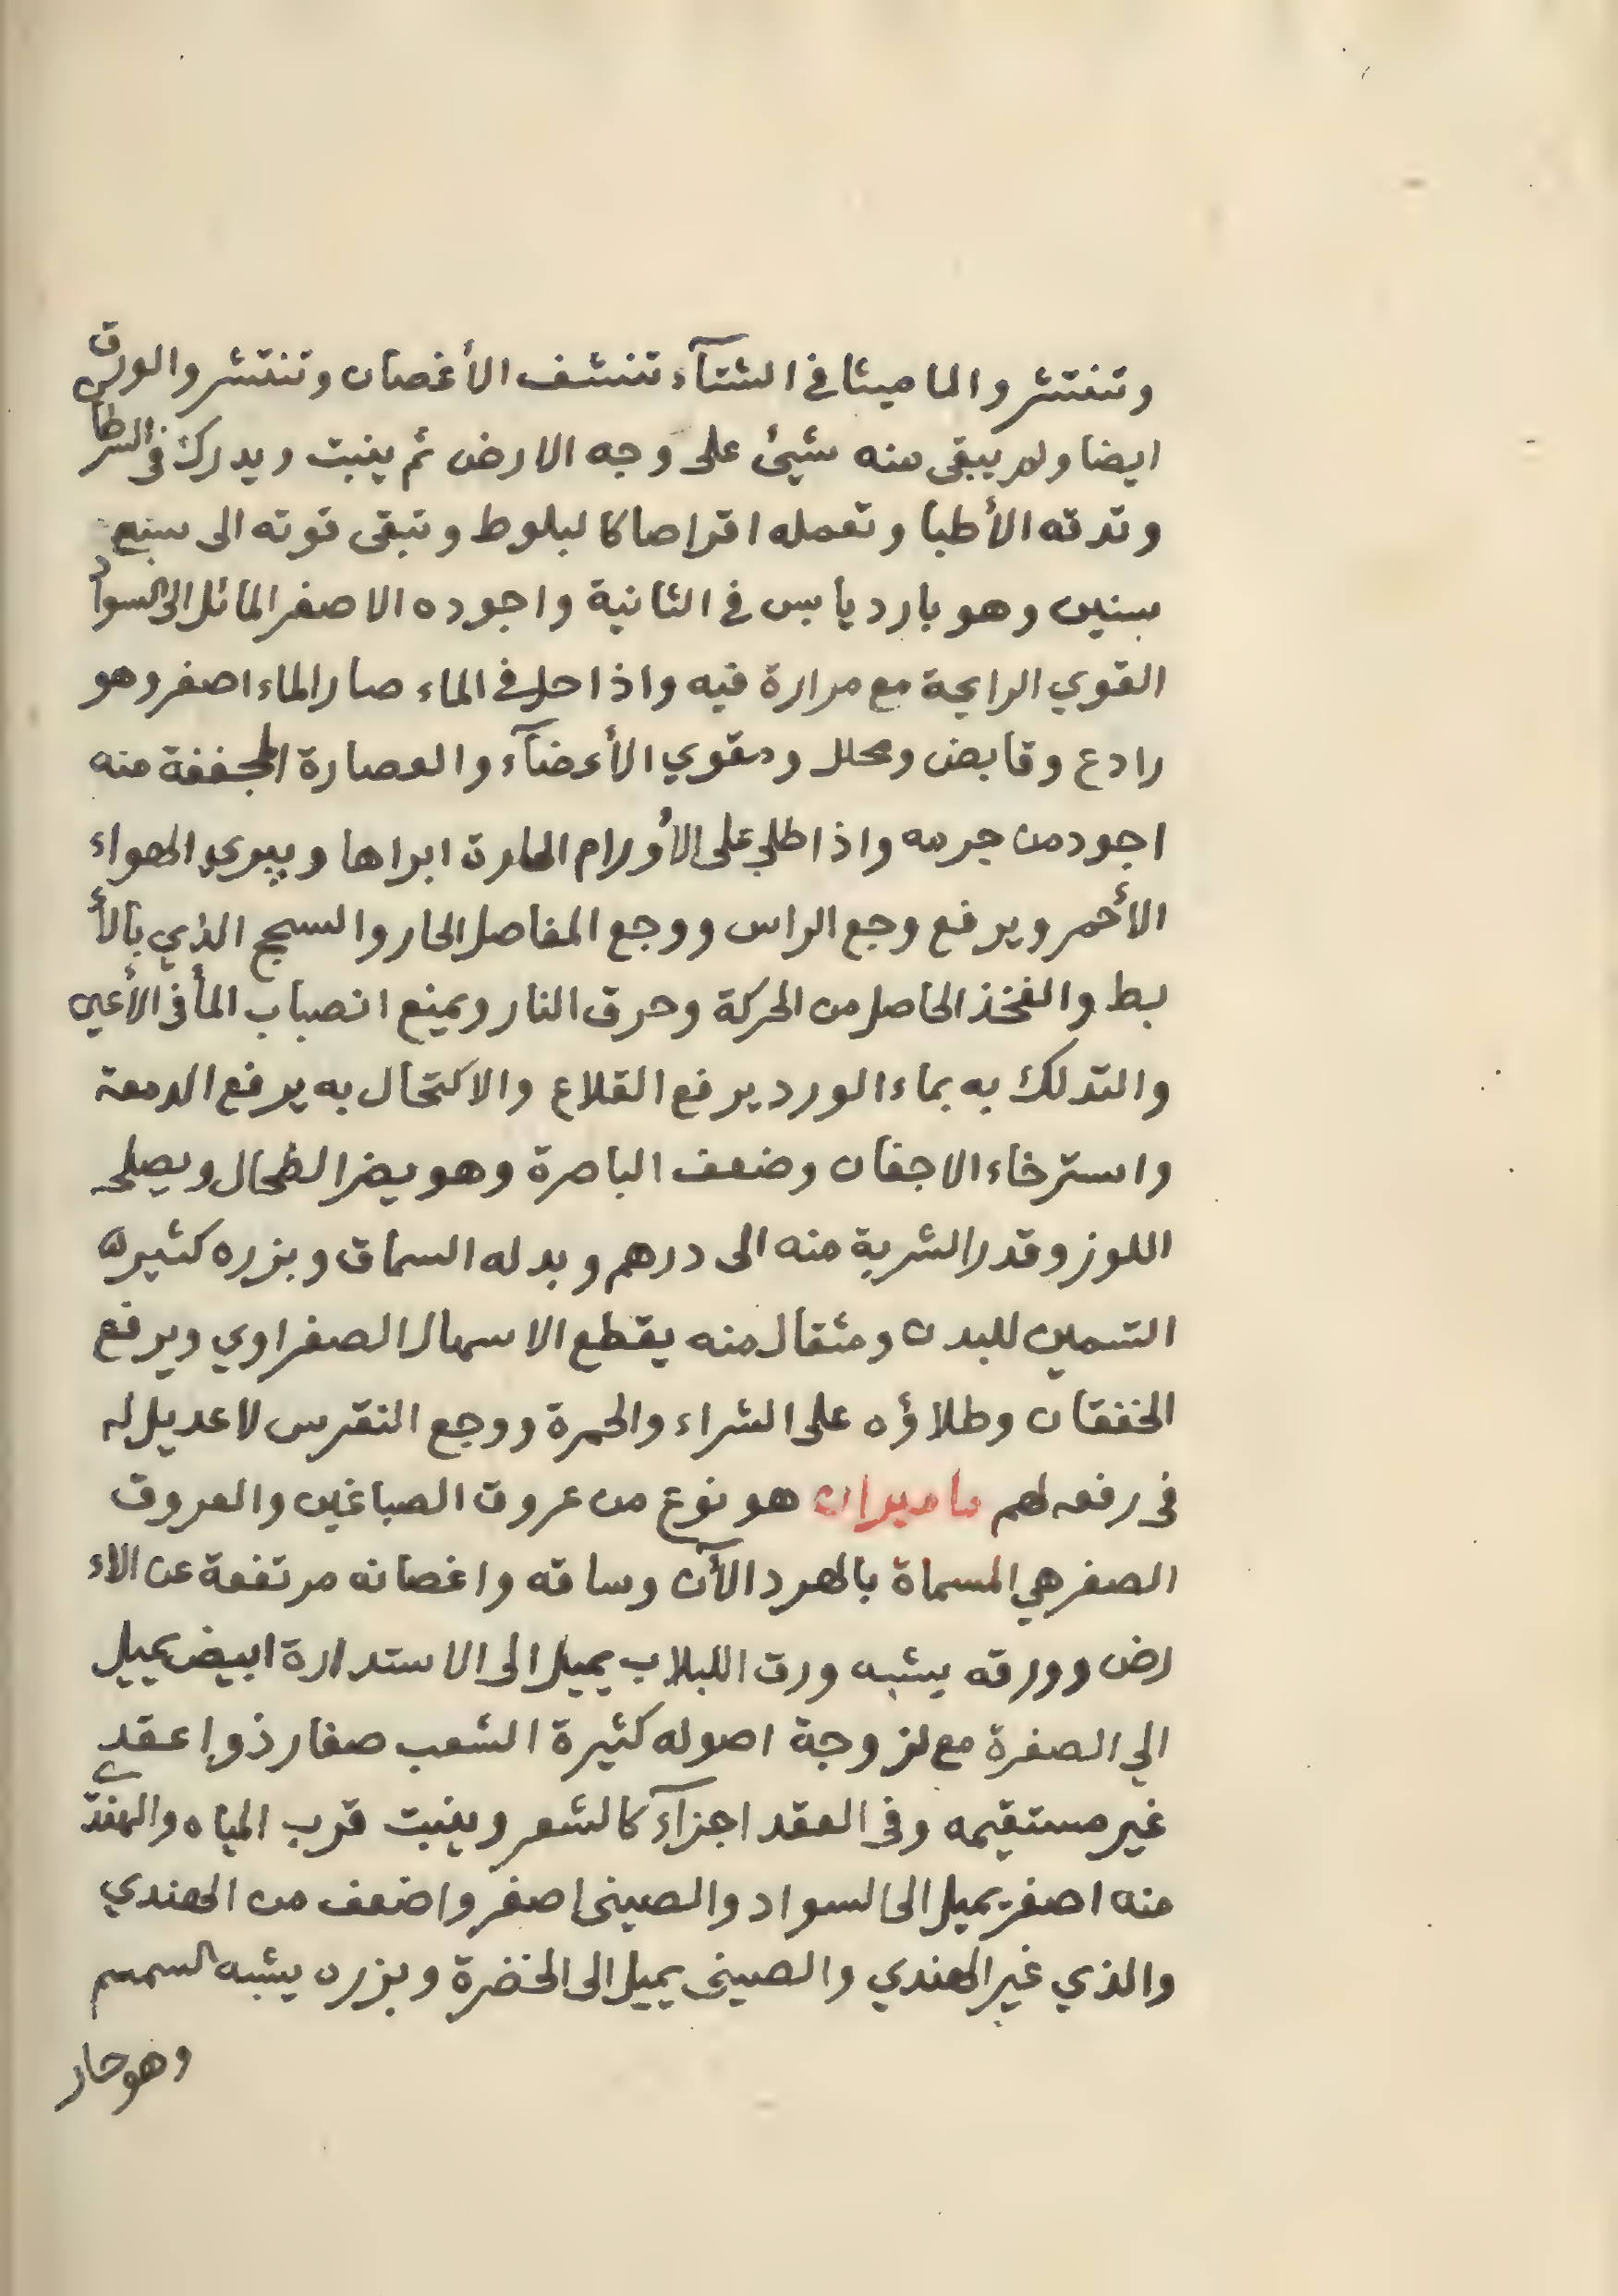 وتنتثر والماميثا في الشتآء تنشف الأغصان وتنتثر والورق
ايضا ولم يبقى منه شيئ على وجه الارض ثم ينبت ويدرك في السرطان
وتدقه الأطبا وتعمله اقراصا كالبلوط وتبقى قوته الى سبع
سنين وهو بارد يابس في الثانية واجوده الاصفر المائل الى السواد
القوي الرايحة مع مرارة فيه واذا حل في الماء صار الماء اصفر وهو
رادع وقابض ومحلل ومقوي الأعضآء والعصارة المجففة منه
اجود من جرمه واذا طلي على الأورام الحارة ابراها ويبري الهواء
الأحمر ويرفع وجع الراس ووجع المفاصل الحار والسحج الذي بالأ
بط والفخذ الحاصل من الحركة وحرق النار ويمنع انصباب المأ في الأعين
والتدلك به بماء الورد يرفع القلاع والاكتحال به يرفع الدمعة
واسترخاء الاجفان وضعف الباصرة وهو يضر الطحال ويصلحه
اللوز وقدر الشربة منه الى درهم وبدله السماق وبزره كثيره
التسمين للبدن ومثقال منه يقطع الاسهال الصفراوي ويرفع
الخفقان وطلاؤه على الشراء والحمرة ووجع النقرس لا عديل له
في رفعه لهم ماميران هو نوع من عروق الصباغين والعروق
الصفر هي المسماة بالهرد الآن وساقه واغصانه مرتفعة عن الاء
رض وورقه يشبه ورق اللبلاب يميل الى الاستدارة ابيض يميل
الي الصفرة مع لزوجة اصوله كثيرة الشعب صغار ذوا عقد
غير مستقيمه وفي العقد اجزآء كالشعر وينبت قرب المياه والهندي
منه اصفر يميل الى السواد والصيني اصفر واضعف من الهندي
والذي غير الهندي والصيني يميل الى الخضرة وبزره يشبه السمسم
وهو حار